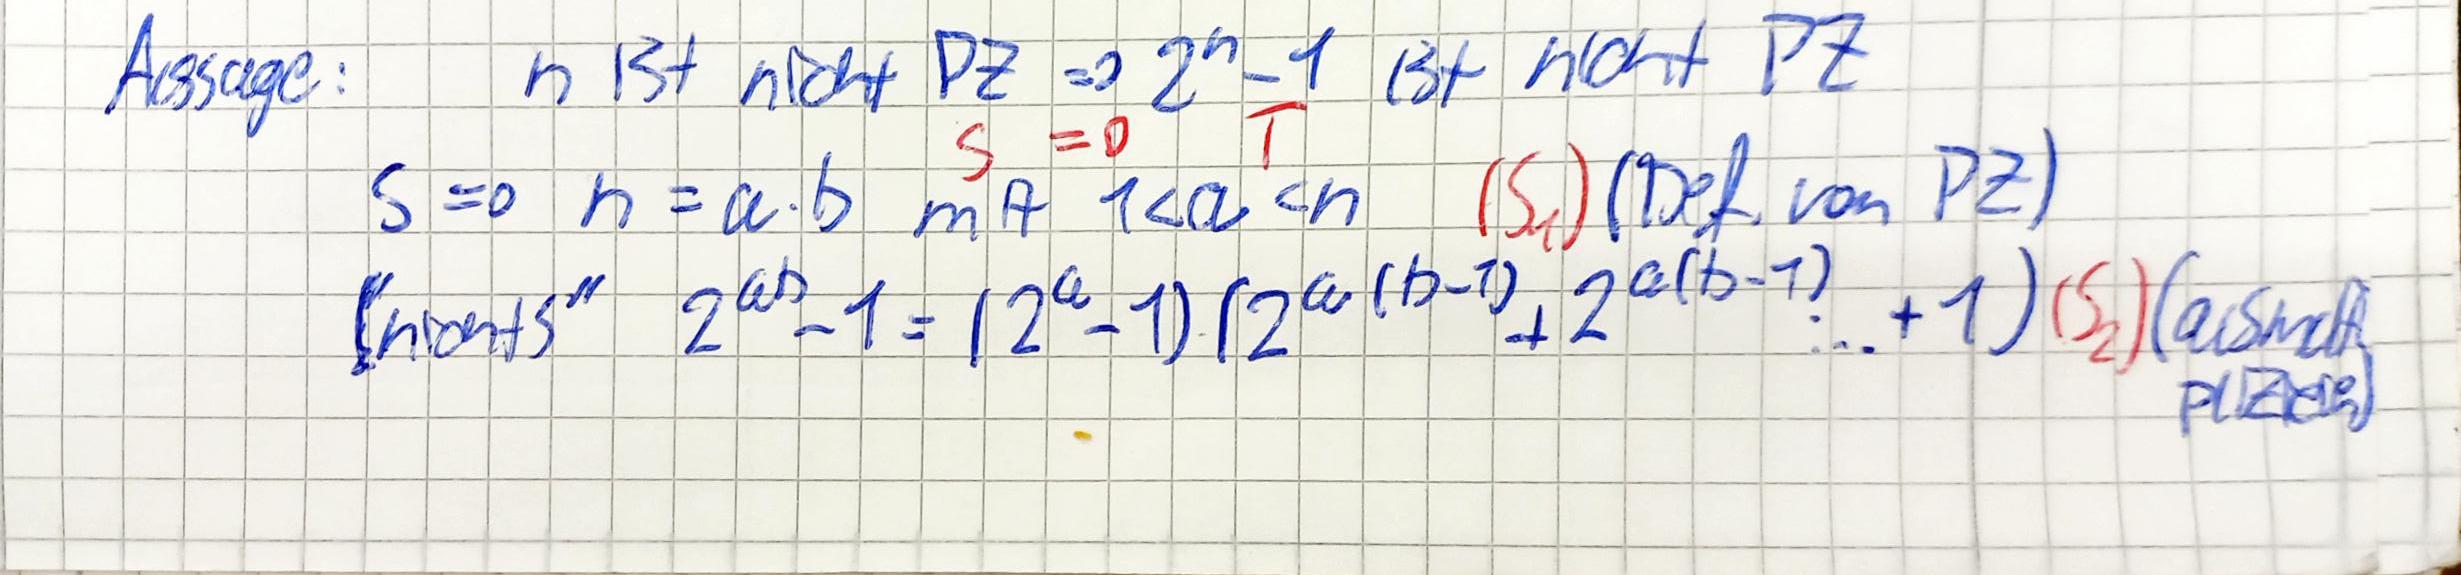 Aussage: n ist nicht PZ => 2ⁿ-1 ist nicht PZ
S => T
S => n = a·b mit 1<a<n (S₁) (Def. von PZ)
"nichts" 2^{ab}-1 = (2^a-1)·(2^{a(b-1)}+2^{a(b-1)}...+1) (S₂) (ausmulti
plizieren)